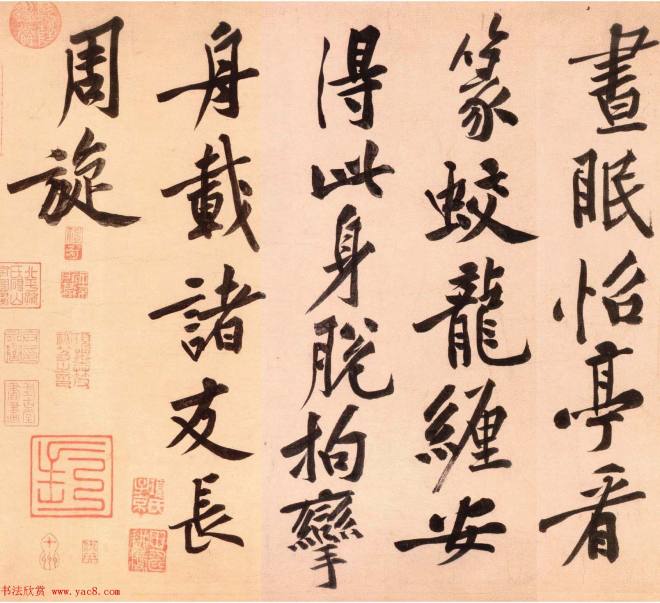 晝眠怡亭看
篆蛟龍纏安
得此身脫拘攣
舟載諸友長
周旋
书法欣赏 www.yac8.com